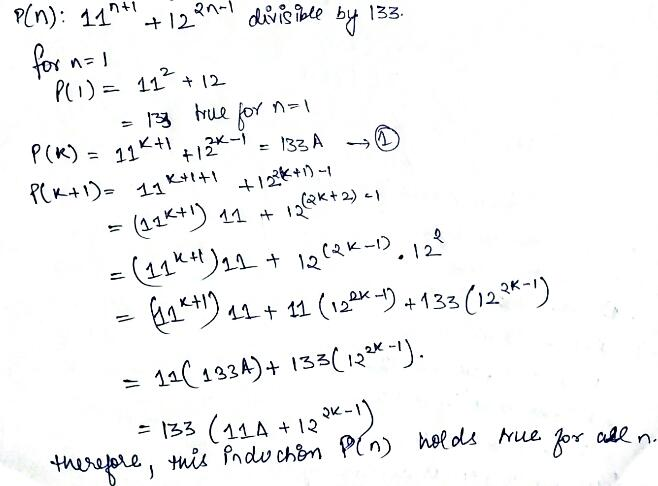 P(n): 11^(n+1) + 12^(2n-1) divisible by 133.
for n=1
P(1) = 11^2 + 12
= 133 true for n=1
P(K) = 11^(K+1) + 12^(2K-1) = 133A → ①
P(K+1) = 11^(K+1+1) + 12^(2(K+1)-1)
= (11^(K+1)) 11 + 12^((2K+2)-1)
= (11^(K+1)) 11 + 12^((2K-1)) . 12^2
= (11^(K+1)) 11 + 11 (12^(2K-1)) + 133 (12^(2K-1))
= 11(133A) + 133(12^(2K-1)).
= 133 (11A + 12^(2K-1))
therefore, this induction P(n) holds true for all n.